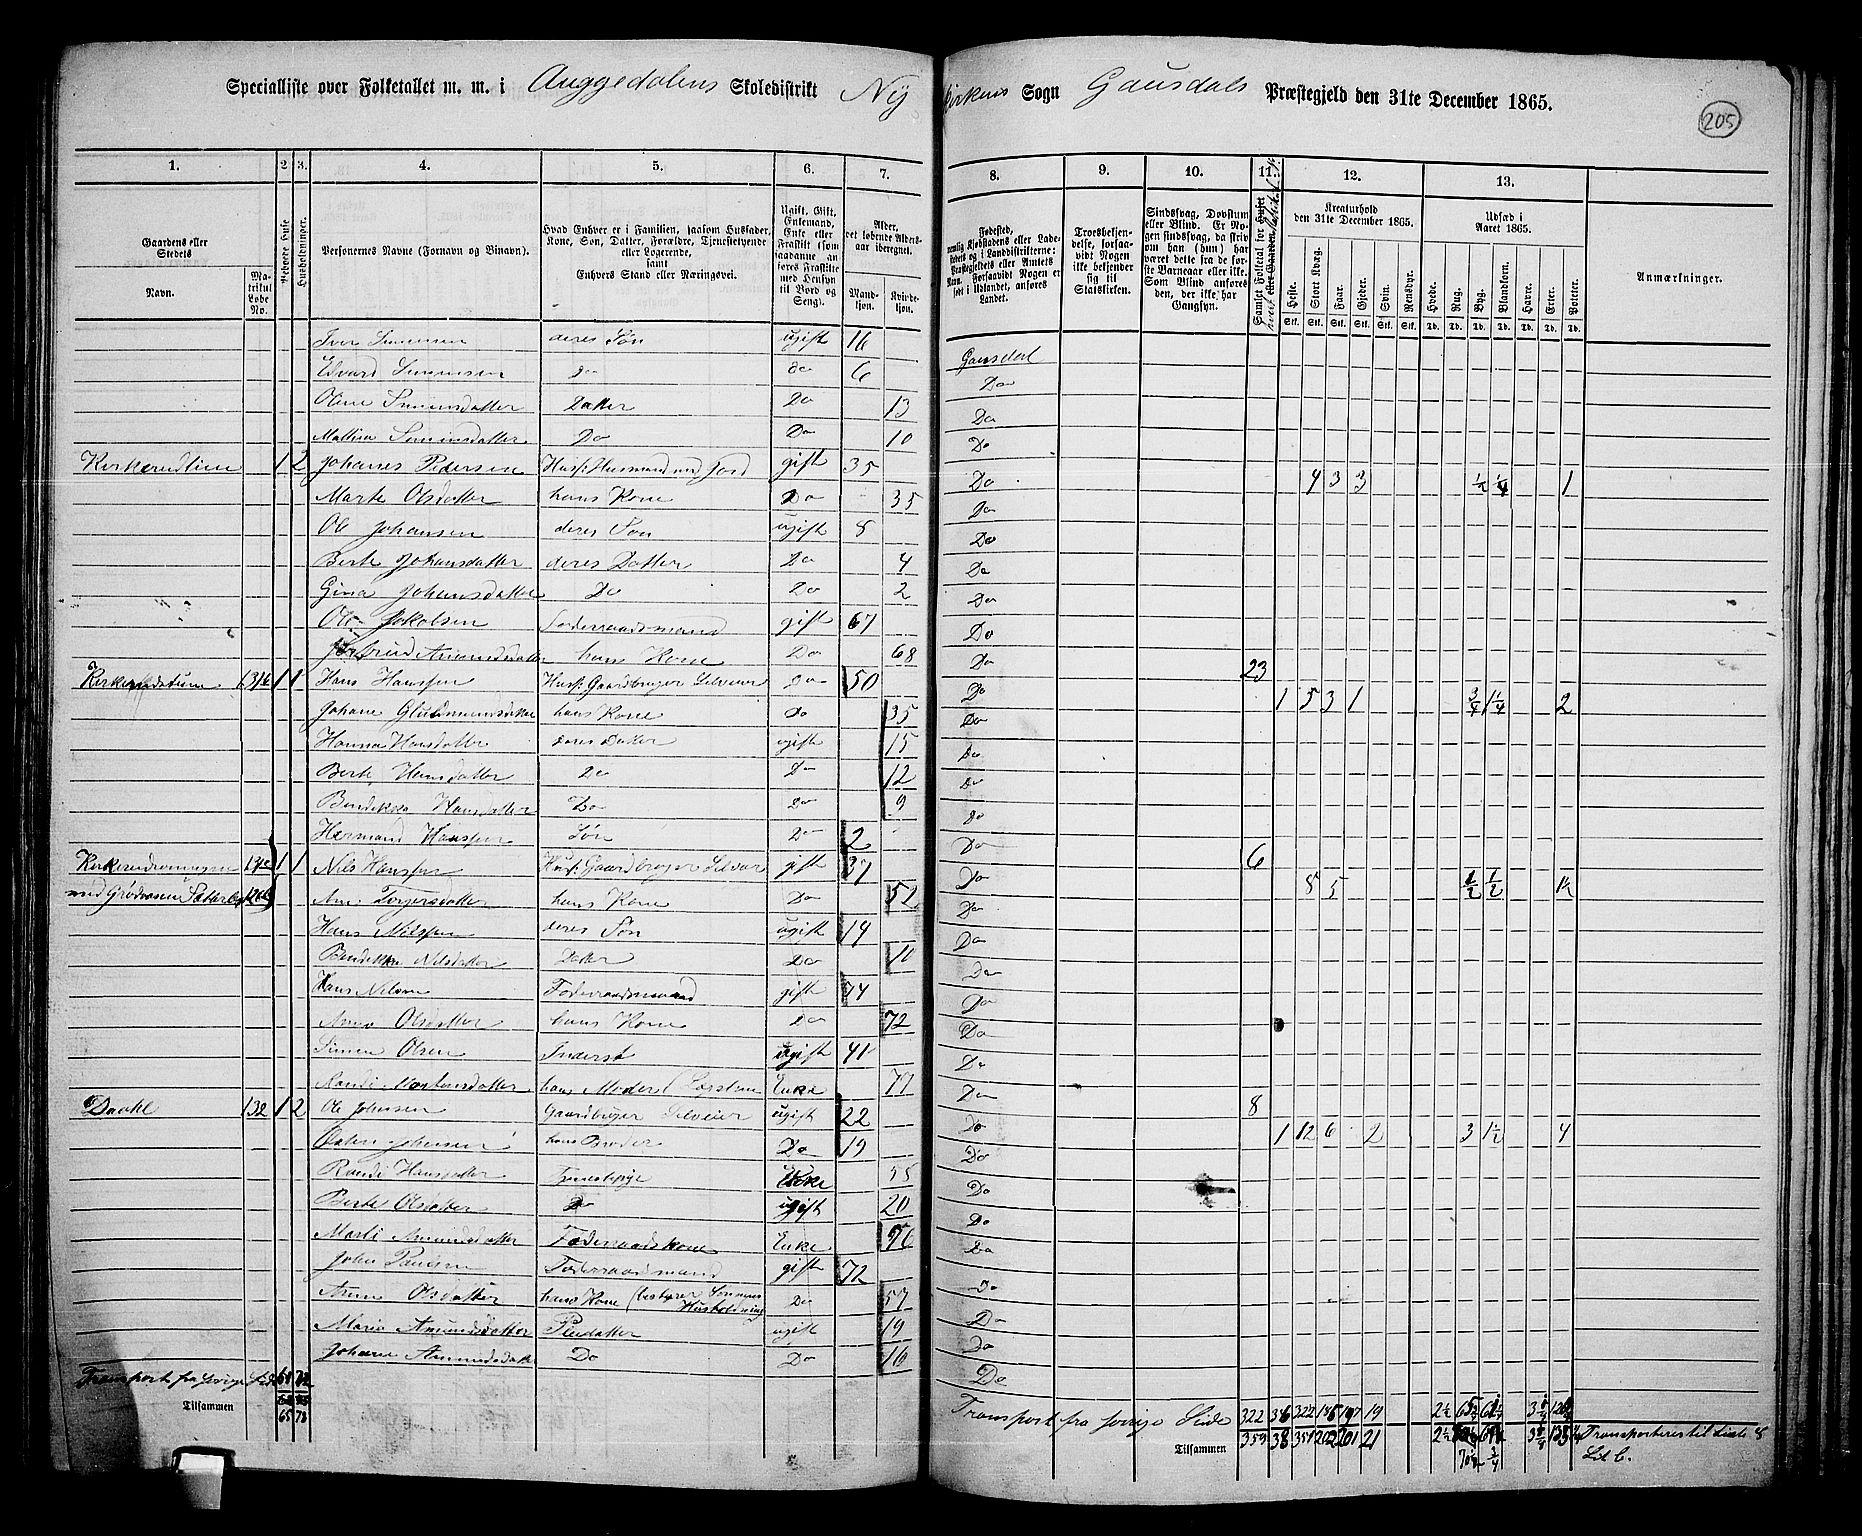 Specialliste over Folketallet m. m. i Auggedalens Skoledistrikt Ny kirkens Sogn Gausdals Præstegjeld den 31te December 1865.
205
1. 2. 3. 4. 5. 6. 7. 8. 9. 10. 11. 12. 13.
Gaardens eller Stedets Navn. Matrikul Løbe No. Beboede Huse Husholdninger.
Personernes Navne (Fornavn og Binavn).
Hvad Enhver er i Familien, saasom Husfader, Kone, Søn, Datter, Forældre, Tjenestetyende eller Logerende, samt Enhvers Stand eller Næringsvei.
Ugift, Gift, Enkemand, Enke eller Fraskilt (som saadanne anføres Fraskilte med Hensyn til Bord og Seng).
Alder, det løbende Aldersaar iberegnet. Mandkjøn. Kvindekjøn.
Fødested,
Troesbekjendelse, forsaavidt Nogen ikke bekjender sig til Statskirken.
Sindssvag, Døvstum eller Blind. Er Nogen sindssvag, da skrives om han (hun) har været dette fra de første Barneaar eller ikke. Som Blind anføres den, der ikke har Gangsyn.
Kreaturhold den 31te December 1865. Heste. Stort Kvæg. Faar. Gjeder. Svin. Rensdyr.
Udsæd i Aaret 1865. Hvede. Rug. Byg. Blandkorn. Havre. Erter. Poteter.
Anmærkninger.
Iver Simensen deres Søn ugift 16 Gausdal
Edvard Simensen do do 6 Do
Oline Simensdatter Datter Do 13 Do
Mathea Simensdatter Do Do 10 Do
1 2 Johanes Pedersen Husf. Husmand med Jord gift 35 Do 4 3 3 1/4 1/4 1
Marte Olsdatter hans Kone Do 35 Do
Ole Johansen deres Søn ugift 8 Do
Berte Johansdatter deres Datter Do 4 Do
Gina Johansdatter Do Do 2 Do
Ole Jakobsen Føderaadsmand gift 67 Do
hans Kone Do 68 Do 23
1 1 Hans Hanssen Husf. Gaardbruger Selveier Do 50 Do 1 5 3 1 3/4 1 1/4 2
Johane Gulbrandsdatter hans Kone Do 35 Do
Hanna Hansdatter deres Datter ugift 15 Do
Berte Hansdatter Do Do 12 Do
Hansdatter Do Do 9 Do
Hermand Hanssen Søn Do 2 Do 6
1 1 Nils Hanssen Husf. Gaardbruger Selveier gift 37 Do 8 5 1/2 1/2 1 1/2
Torgersdatter hans Kone Do 52 Do
Hans Nilssen deres Søn ugift 14 Do
Nilsdatter Datter Do 10 Do
Hans Nilsen Føderaadsmand gift 74 Do
Anne Olsdatter hans Kone Do 72 Do
Simen Olsen Inderst ugift 41 Do
Randi Mortensdatter hans Moder Enke 77 Do 8
Daahl 132 1 2 Ole Johnsen Gaardbruger Selveier ugift 22 Do 1 12 6 2 3 1 1/2 4
Johnsen hans Broder Do 19 Do
Randi Hansdatter Tjenestepige Enke 55 Do
Berte Olsdatter Do ugift 20 Do
Marti Amundsdatter Føderaadskone Enke 76 Do
John Paulsen Føderaadsmand gift 72 Do
Anne Olsdatter hans Kone (bestyrer Sønnens Husholdning) Do 57 Do
Maria Amundsdatter Pleiedatter ugift 19 Do
Johane Amundsdatter Do Do 16 Do
Transport fra forrige Side
Tilsammen 65 78
Transport fra forrige Side 322 36 322 19
Tilsammen 359 38 351 202 201 21
Transporteres til Liste 8 Lit b.